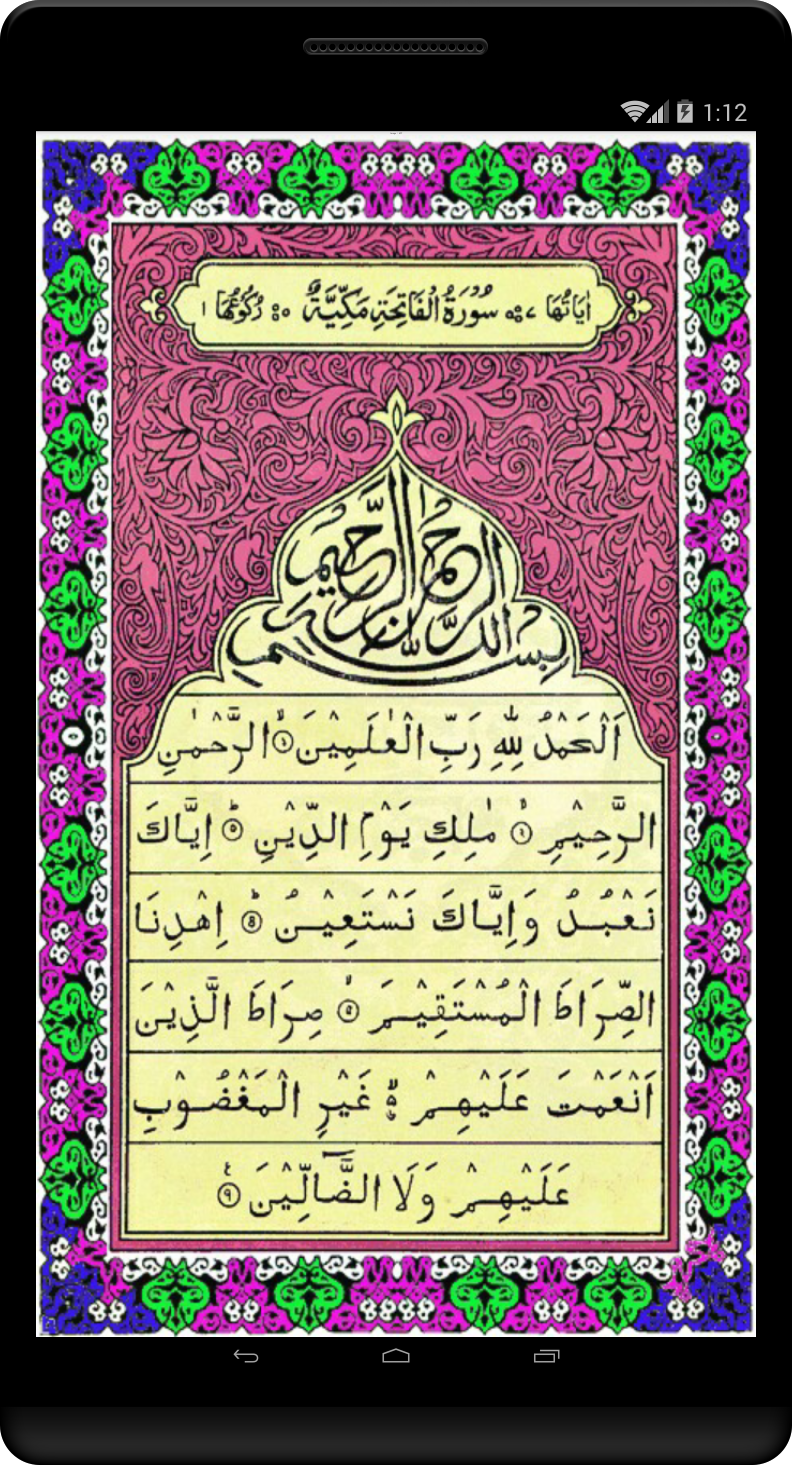 1:12
اٰيَاتُهَا ٧ سُوْرَةُ الْفَاتِحَةِ مَكِّيَّةٌ ٥ رُكُوْعُهَا ١
بِسْمِ اللهِ الرَّحْمٰنِ الرَّحِيْمِ
اَلْحَمْدُ لِلّٰهِ رَبِّ الْعٰلَمِيْنَ ۙ﴿١﴾ الرَّحْمٰنِ
الرَّحِيْمِ ۙ﴿٢﴾ مٰلِكِ يَوْمِ الدِّيْنِ ؕ﴿﴾ اِيَّاكَ
نَعْبُدُ وَاِيَّاكَ نَسْتَعِيْنُ ؕ﴿٤﴾ اِهْدِنَا
الصِّرَاطَ الْمُسْتَقِيْمَ ۙ﴿٥﴾ صِرَاطَ الَّذِيْنَ
اَنْعَمْتَ عَلَيْهِمْ غَيْرِ الْمَغْضُوْبِ
عَلَيْهِمْ وَلَا الضَّآلِّيْنَ ﴿﴾